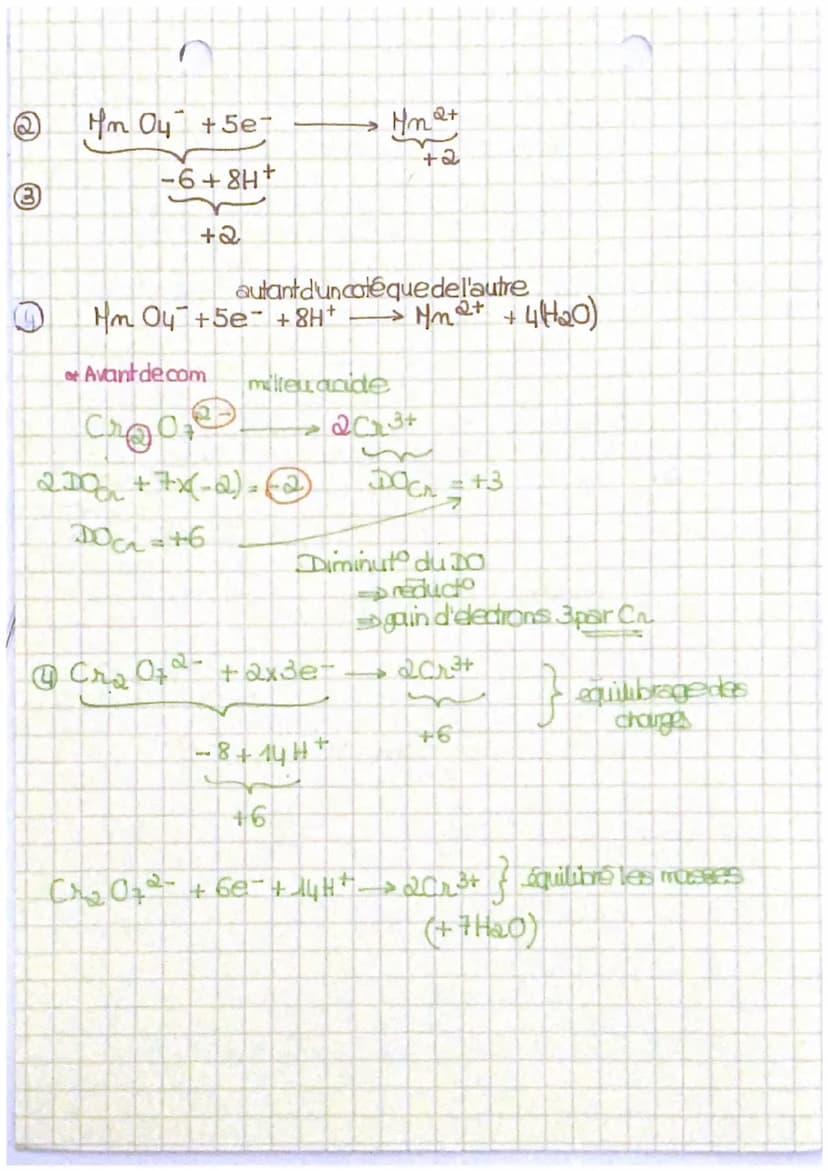 ② MnO₄⁻ + 5e⁻ → Mn²⁺
+2
③ -6 + 8H⁺
+2
autant d'un coté que de l'autre
④ MnO₄⁻ + 5e⁻ + 8H⁺ → Mn²⁺ + 4(H₂O)
* Avant de com milieu acide
Cr₂O₇²⁻ → 2Cr³⁺
2DOCr + 7x(-2) = -2 DOCr = +3
DOCr = +6
Diminut° du DO
⇒ réduct°
⇒ gain d'électrons 3 par Cr
④ Cr₂O₇²⁻ + 2x3e⁻ → 2Cr³⁺ } équilibrage des
charges
+6
-8 + 14H⁺
+6
Cr₂O₇²⁻ + 6e⁻ + 14H⁺ → 2Cr³⁺ } équilibré les masses
(+7H₂O)